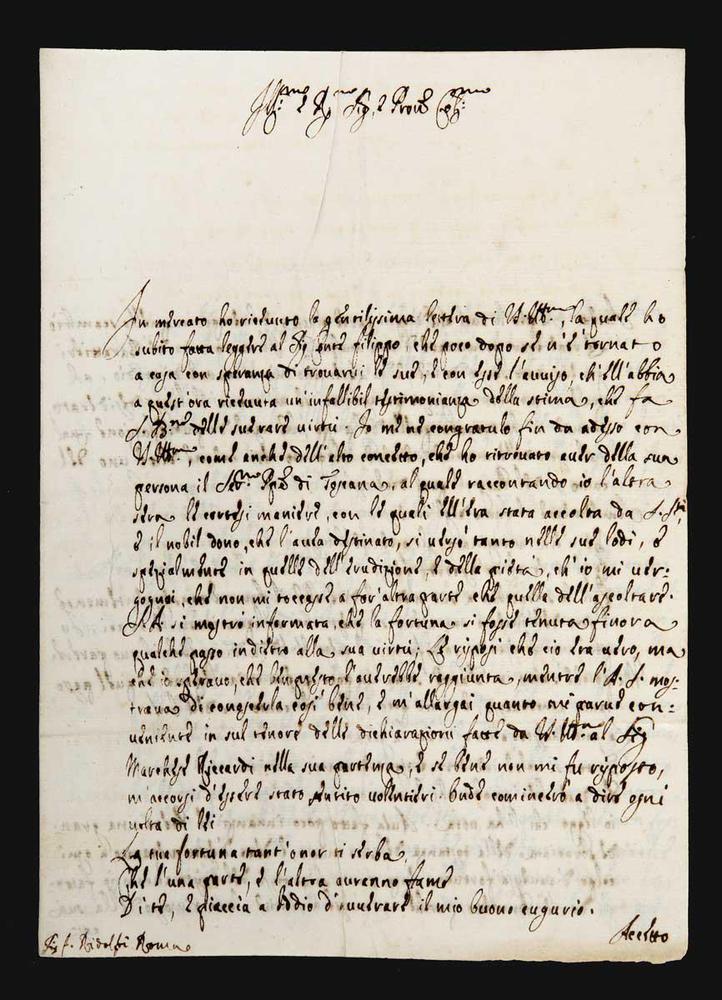 Ill.mo e R.mo Sig. e Pron. Col.mo
In mercato ho riceuuto la gentilissima lettera di V. Ill.ma, la quale ho
subito fatta leggere al Sig. Conte filippo, che poco dopo se n'è tornato
a casa con speranza di trouarui le sue, e con esse l'auuiso, ch'ell'abbia
a quest'ora riceuuta un'infallibil testimonianza della stima, che fa
S. B.ne delle sue rare uirtù. Io me ne congratulo fin da adesso con
V. Ill.ma, come anche dell'alto concetto, che ho ritrouato auer della sua
persona il Ser.mo Pnpe di Toscana, al quale raccontando io l'altra
sera le cortesi maniere, con le quali ell'era stata accolta da S. S.tà,
e il nobil dono, che l'auea destinato, si uersò tanto nelle sue lodi, e
spezialmente in quelle dell'erudizione, e della pietà, ch'io mi uer-
gognai, che non mi toccasse a far'altra parte che quella dell'ascoltare.
S. A. si mostrò informata, che la fortuna si fosse tenuta finora
qualche passo indietro alla sua uirtù; Le risposi che ciò era uero, ma
che io sperauo, che ben presto l'auerebbe raggiunta, mentre l'A. S. mos-
traua di conoscerla così bene, e m'allargai quanto mi parue con-
ueniente in sul tenore delle dichiarazioni fatte da V. Ill.ma al Sig.
Marchese Riccardi nella sua partenza, e se bene non mi fu risposto,
m'accorsi d'essere stato sentito uolentieri. Onde comincerò a dire ogni
uolta di lei
La tua fortuna tant'onor ti serba,
Che l'una parte, e l'altra auranno fame
Di te, e piaccia a Iddio d'auuerare il mio buono augurio.
Accetto
Sig. f. Ridolfi Roma